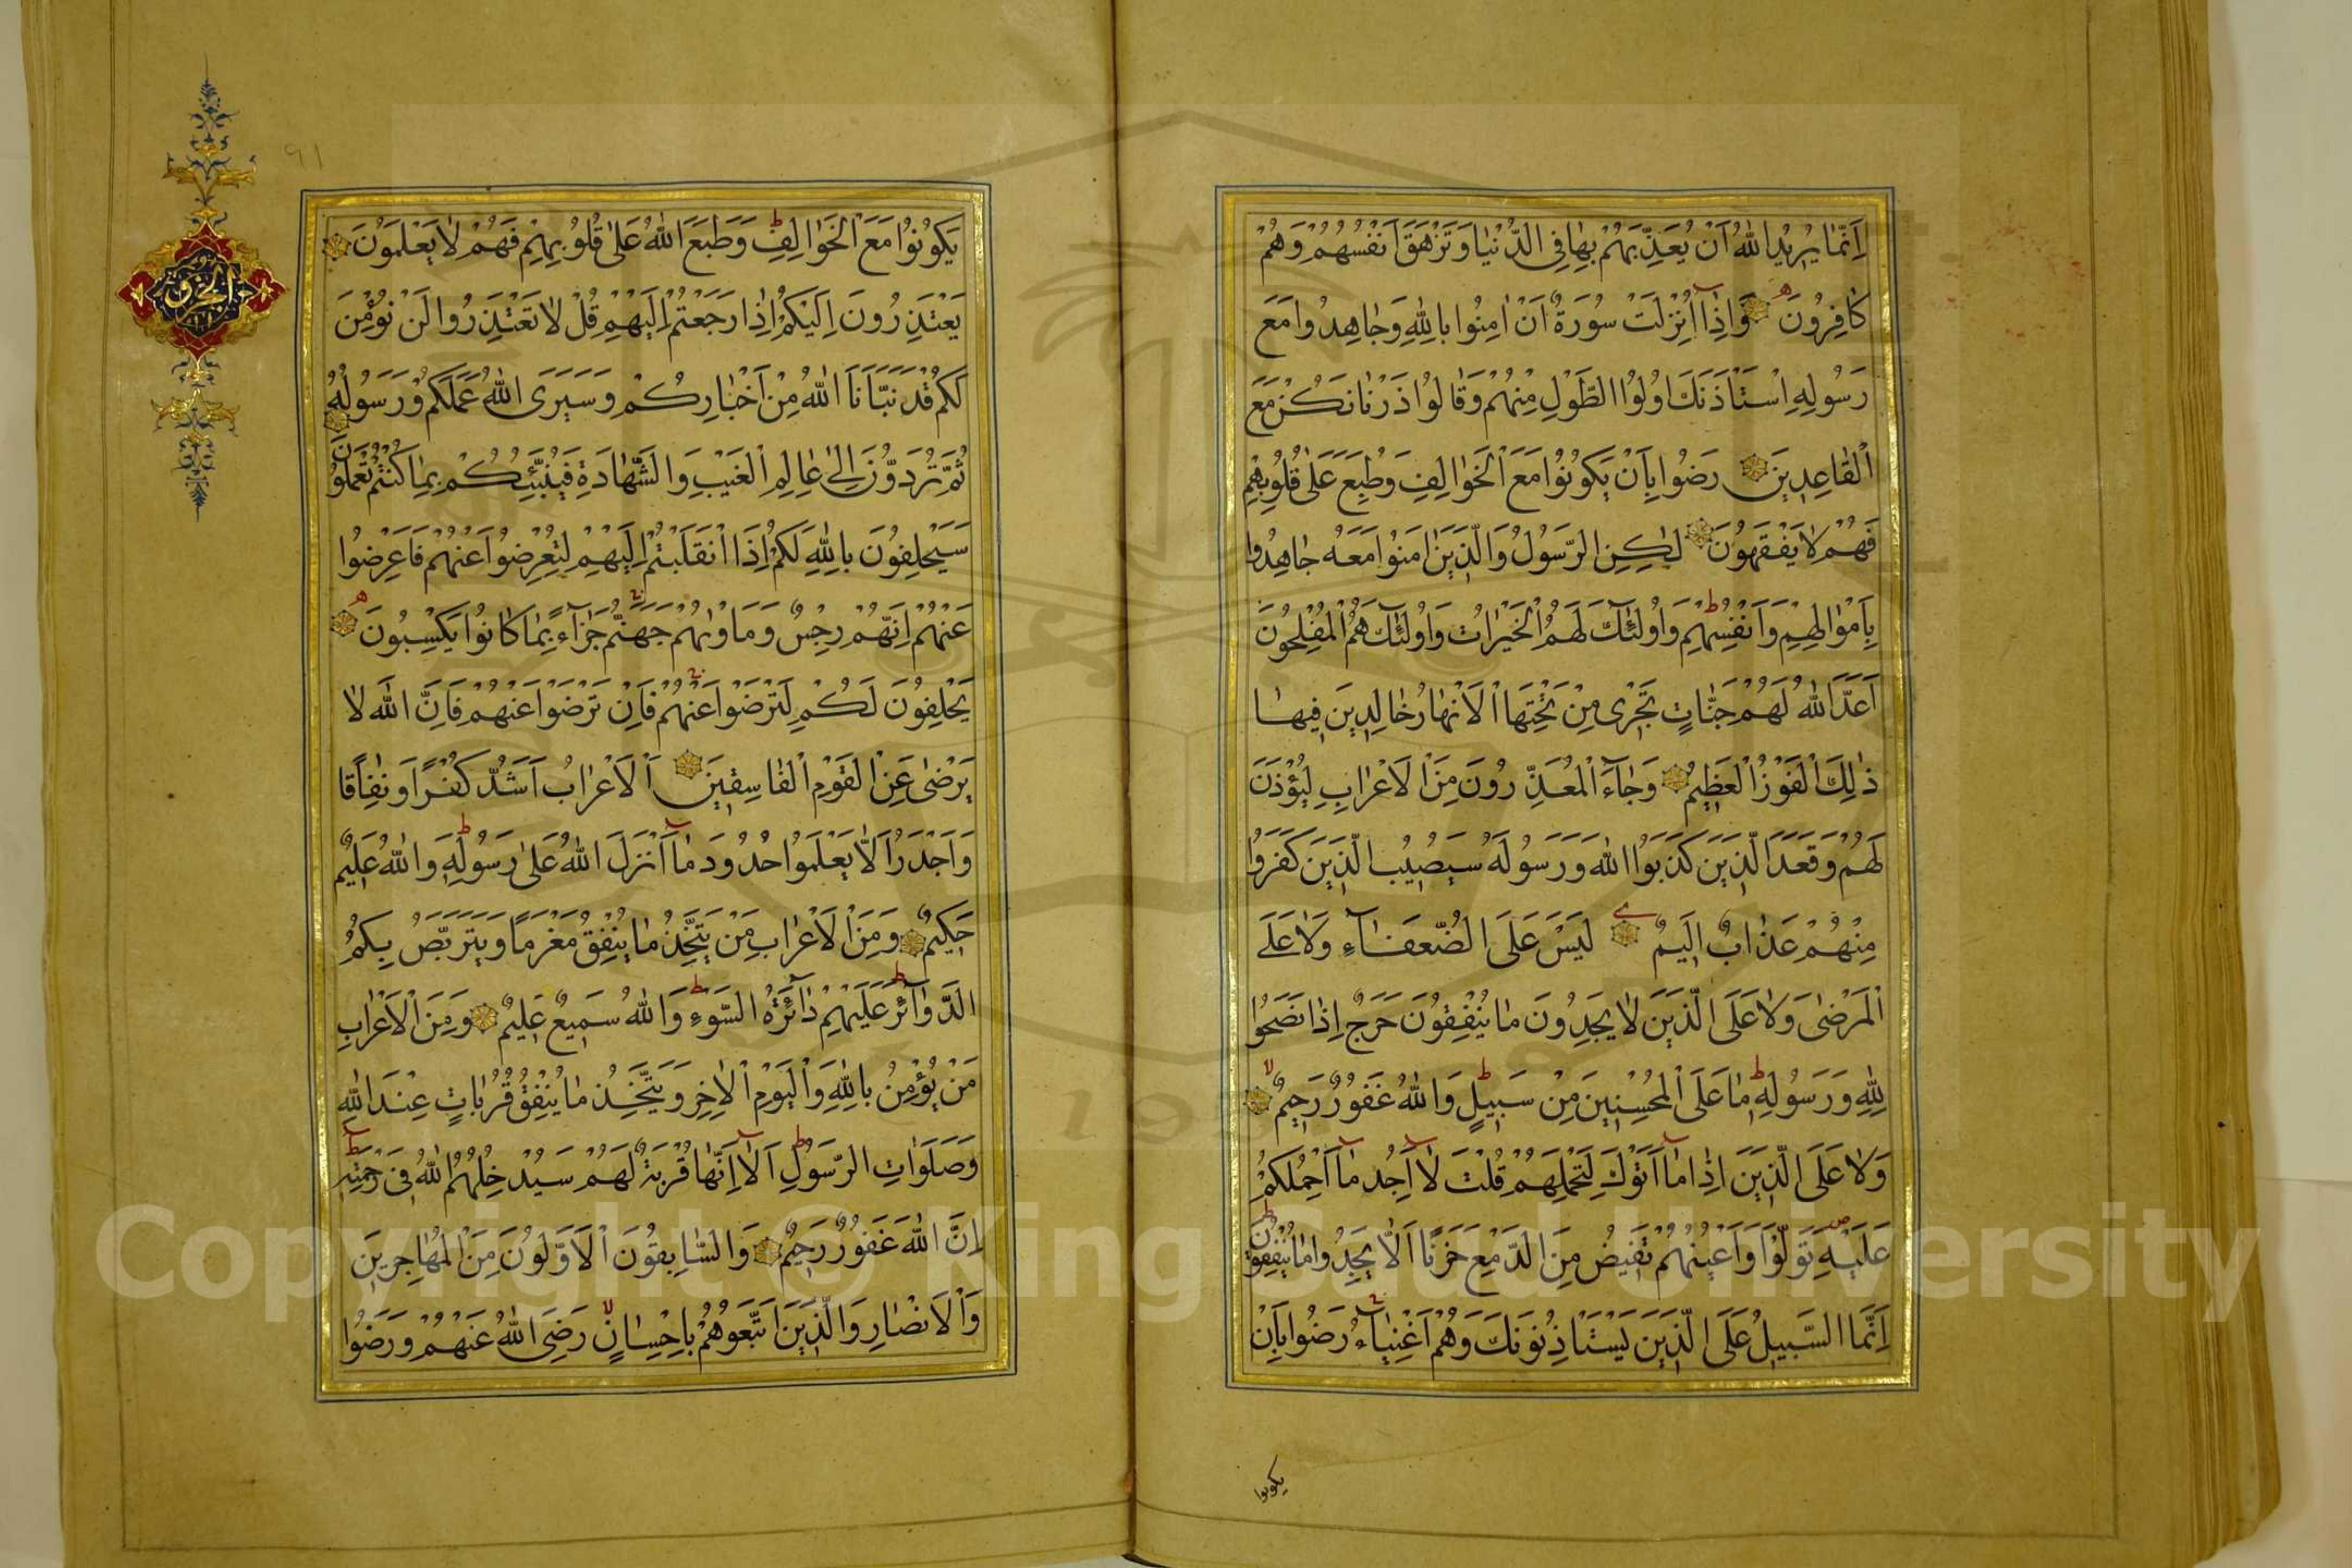 اِنَّمَا يُرِيدُ اللّٰهُ اَنْ يُعَذِّبَهُمْ بِهَا فِي الدُّنْيَا وَتَزْهَقَ اَنْفُسُهُمْ وَهُمْ
كَافِرُونَ وَاِذَا اُنْزِلَتْ سُورَةٌ اَنْ اٰمِنُوا بِاللّٰهِ وَجَاهِدُوا مَعَ
رَسُولِهِ اِسْتَاْذَنَكَ اُولُوا الطَّوْلِ مِنْهُمْ وَقَالُوا ذَرْنَا نَكُنْ مَعَ
الْقَاعِدِينَ رَضُوا بِاَنْ يَكُونُوا مَعَ الْخَوَالِفِ وَطُبِعَ عَلٰى قُلُوبِهِمْ
فَهُمْ لَا يَفْقَهُونَ لٰكِنِ الرَّسُولُ وَالَّذِينَ اٰمَنُوا مَعَهُ جَاهَدُوا
بِاَمْوَالِهِمْ وَاَنْفُسِهِمْ وَاُولٰئِكَ لَهُمُ الْخَيْرَاتُ وَاُولٰئِكَ هُمُ الْمُفْلِحُونَ
اَعَدَّ اللّٰهُ لَهُمْ جَنَّاتٍ تَجْرِي مِنْ تَحْتِهَا الْاَنْهَارُ خَالِدِينَ فِيهَا
ذٰلِكَ الْفَوْزُ الْعَظِيمُ وَجَاءَ الْمُعَذِّرُونَ مِنَ الْاَعْرَابِ لِيُؤْذَنَ
لَهُمْ وَقَعَدَ الَّذِينَ كَذَبُوا اللّٰهَ وَرَسُولَهُ سَيُصِيبُ الَّذِينَ كَفَرُوا
مِنْهُمْ عَذَابٌ اَلِيمٌ لَيْسَ عَلَى الضُّعَفَاءِ وَلَا عَلَى
الْمَرْضٰى وَلَا عَلَى الَّذِينَ لَا يَجِدُونَ مَا يُنْفِقُونَ حَرَجٌ اِذَا نَصَحُوا
لِلّٰهِ وَرَسُولِهِ مَا عَلَى الْمُحْسِنِينَ مِنْ سَبِيلٍ وَاللّٰهُ غَفُورٌ رَحِيمٌ
وَلَا عَلَى الَّذِينَ اِذَا مَا اَتَوْكَ لِتَحْمِلَهُمْ قُلْتَ لَا اَجِدُ مَا اَحْمِلُكُمْ
عَلَيْهِ تَوَلَّوْا وَاَعْيُنُهُمْ تَفِيضُ مِنَ الدَّمْعِ حَزَنًا اَلَّا يَجِدُوا مَا يُنْفِقُونَ
اِنَّمَا السَّبِيلُ عَلَى الَّذِينَ يَسْتَاْذِنُونَكَ وَهُمْ اَغْنِيَاءُ رَضُوا بِاَنْ
يكونوا
٩١
يَكُونُوا مَعَ الْخَوَالِفِ وَطَبَعَ اللّٰهُ عَلٰى قُلُوبِهِمْ فَهُمْ لَا يَعْلَمُونَ
يَعْتَذِرُونَ اِلَيْكُمْ اِذَا رَجَعْتُمْ اِلَيْهِمْ قُلْ لَا تَعْتَذِرُوا لَنْ نُؤْمِنَ
لَكُمْ قَدْ نَبَّاَنَا اللّٰهُ مِنْ اَخْبَارِكُمْ وَسَيَرَى اللّٰهُ عَمَلَكُمْ وَرَسُولُهُ
ثُمَّ تُرَدُّونَ اِلٰى عَالِمِ الْغَيْبِ وَالشَّهَادَةِ فَيُنَبِّئُكُمْ بِمَا كُنْتُمْ تَعْمَلُونَ
سَيَحْلِفُونَ بِاللّٰهِ لَكُمْ اِذَا انْقَلَبْتُمْ اِلَيْهِمْ لِتُعْرِضُوا عَنْهُمْ فَاَعْرِضُوا
عَنْهُمْ اِنَّهُمْ رِجْسٌ وَمَاْوٰيهُمْ جَهَنَّمُ جَزَاءً بِمَا كَانُوا يَكْسِبُونَ
يَحْلِفُونَ لَكُمْ لِتَرْضَوْا عَنْهُمْ فَاِنْ تَرْضَوْا عَنْهُمْ فَاِنَّ اللّٰهَ لَا
يَرْضٰى عَنِ الْقَوْمِ الْفَاسِقِينَ اَلْاَعْرَابُ اَشَدُّ كُفْرًا وَنِفَاقًا
وَاَجْدَرُ اَلَّا يَعْلَمُوا حُدُودَ مَا اَنْزَلَ اللّٰهُ عَلٰى رَسُولِهِ وَاللّٰهُ عَلِيمٌ
حَكِيمٌ وَمِنَ الْاَعْرَابِ مَنْ يَتَّخِذُ مَا يُنْفِقُ مَغْرَمًا وَيَتَرَبَّصُ بِكُمُ
الدَّوَائِرَ عَلَيْهِمْ دَائِرَةُ السَّوْءِ وَاللّٰهُ سَمِيعٌ عَلِيمٌ وَمِنَ الْاَعْرَابِ
مَنْ يُؤْمِنُ بِاللّٰهِ وَالْيَوْمِ الْاٰخِرِ وَيَتَّخِذُ مَا يُنْفِقُ قُرُبَاتٍ عِنْدَ اللّٰهِ
وَصَلَوَاتِ الرَّسُولِ اَلَا اِنَّهَا قُرْبَةٌ لَهُمْ سَيُدْخِلُهُمُ اللّٰهُ فِي رَحْمَتِهِ
اِنَّ اللّٰهَ غَفُورٌ رَحِيمٌ وَالسَّابِقُونَ الْاَوَّلُونَ مِنَ الْمُهَاجِرِينَ
وَالْاَنْصَارِ وَالَّذِينَ اتَّبَعُوهُمْ بِاِحْسَانٍ رَضِيَ اللّٰهُ عَنْهُمْ وَرَضُوا
Copyright © King Saud University